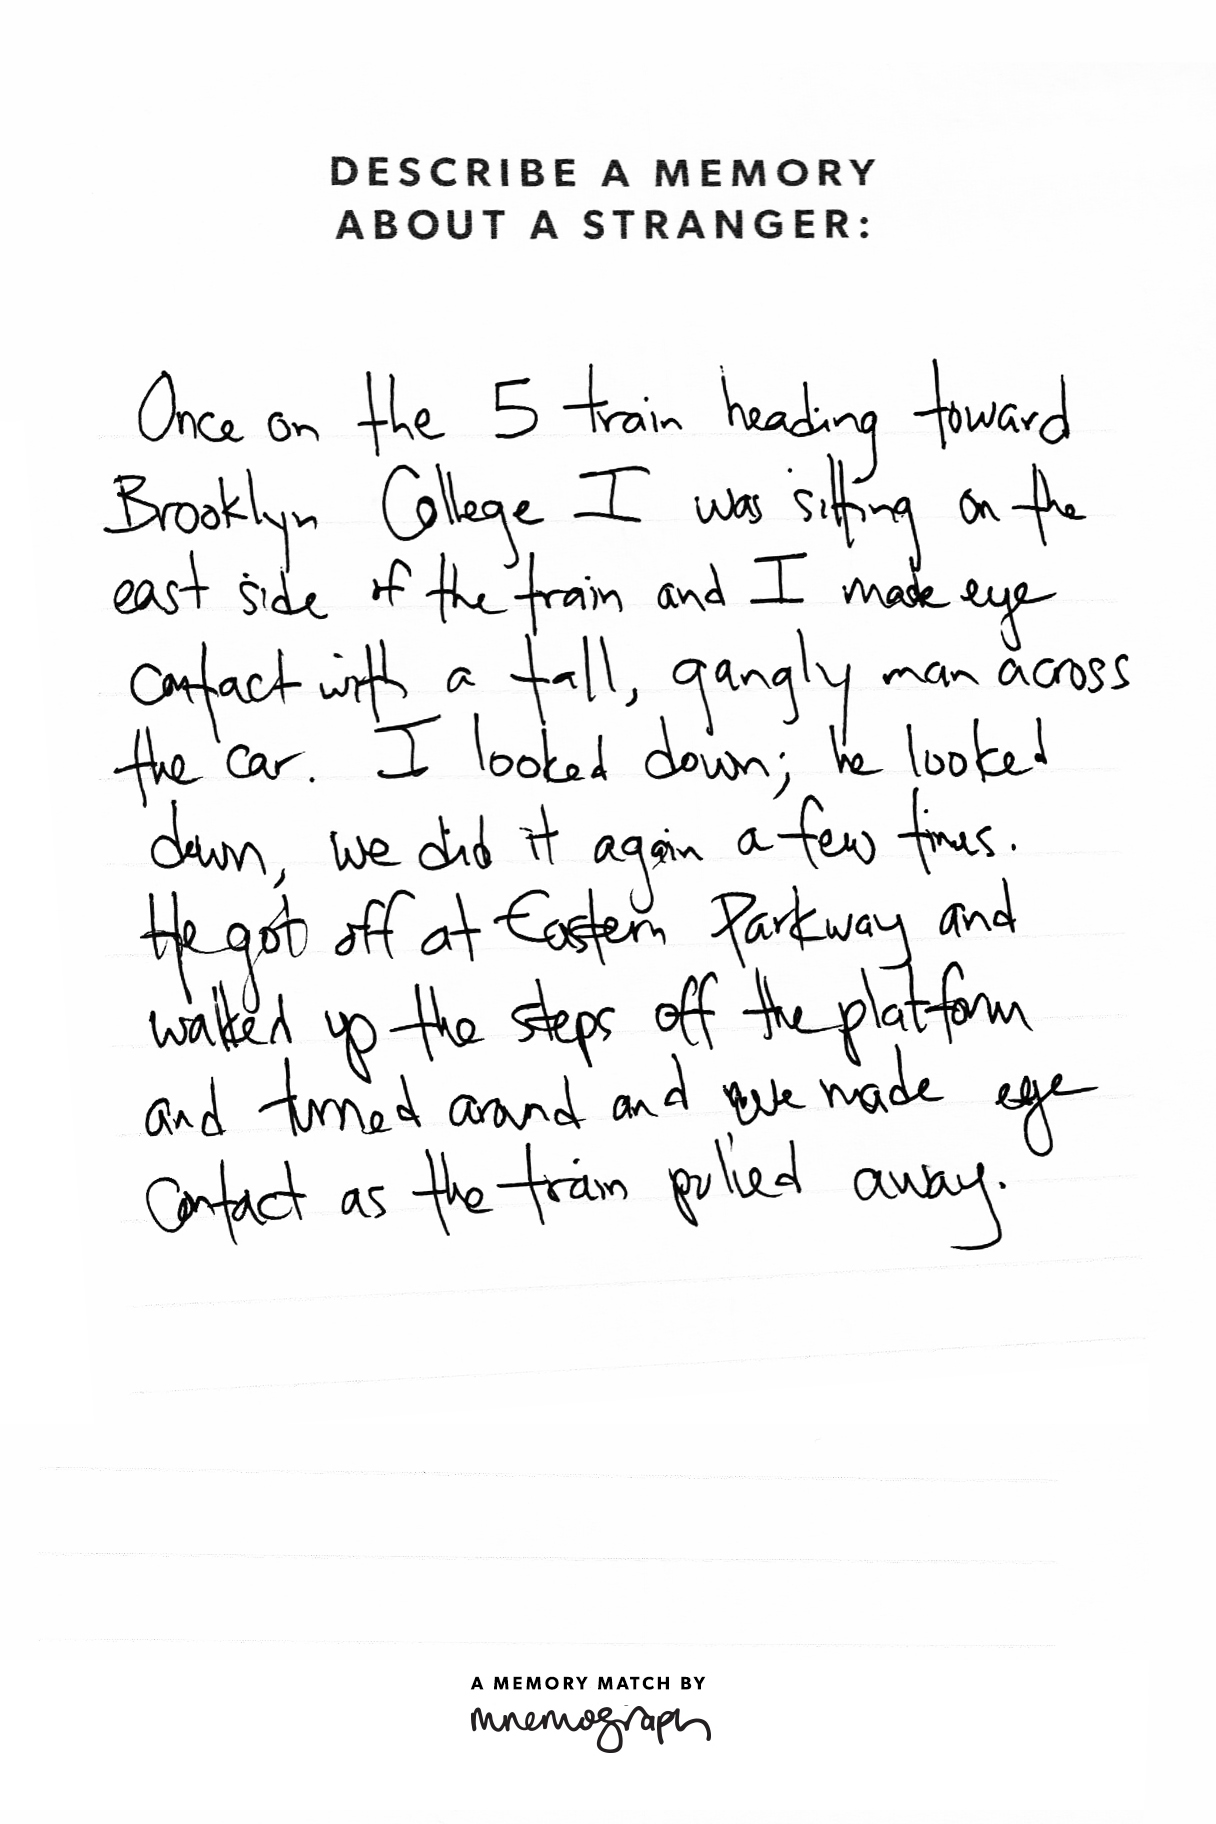 DESCRIBE A MEMORY
ABOUT A STRANGER:
Once on the 5 train heading toward
Brooklyn College I was sitting on the
east side of the train and I made eye
contact with a tall, gangly man across
the car. I looked down; he looked
down, we did it again a few times.
He got off at Eastern Parkway and
walked up the steps off the platform
and turned around and we made eye
contact as the train pulled away.
A MEMORY MATCH BY
mnemograph